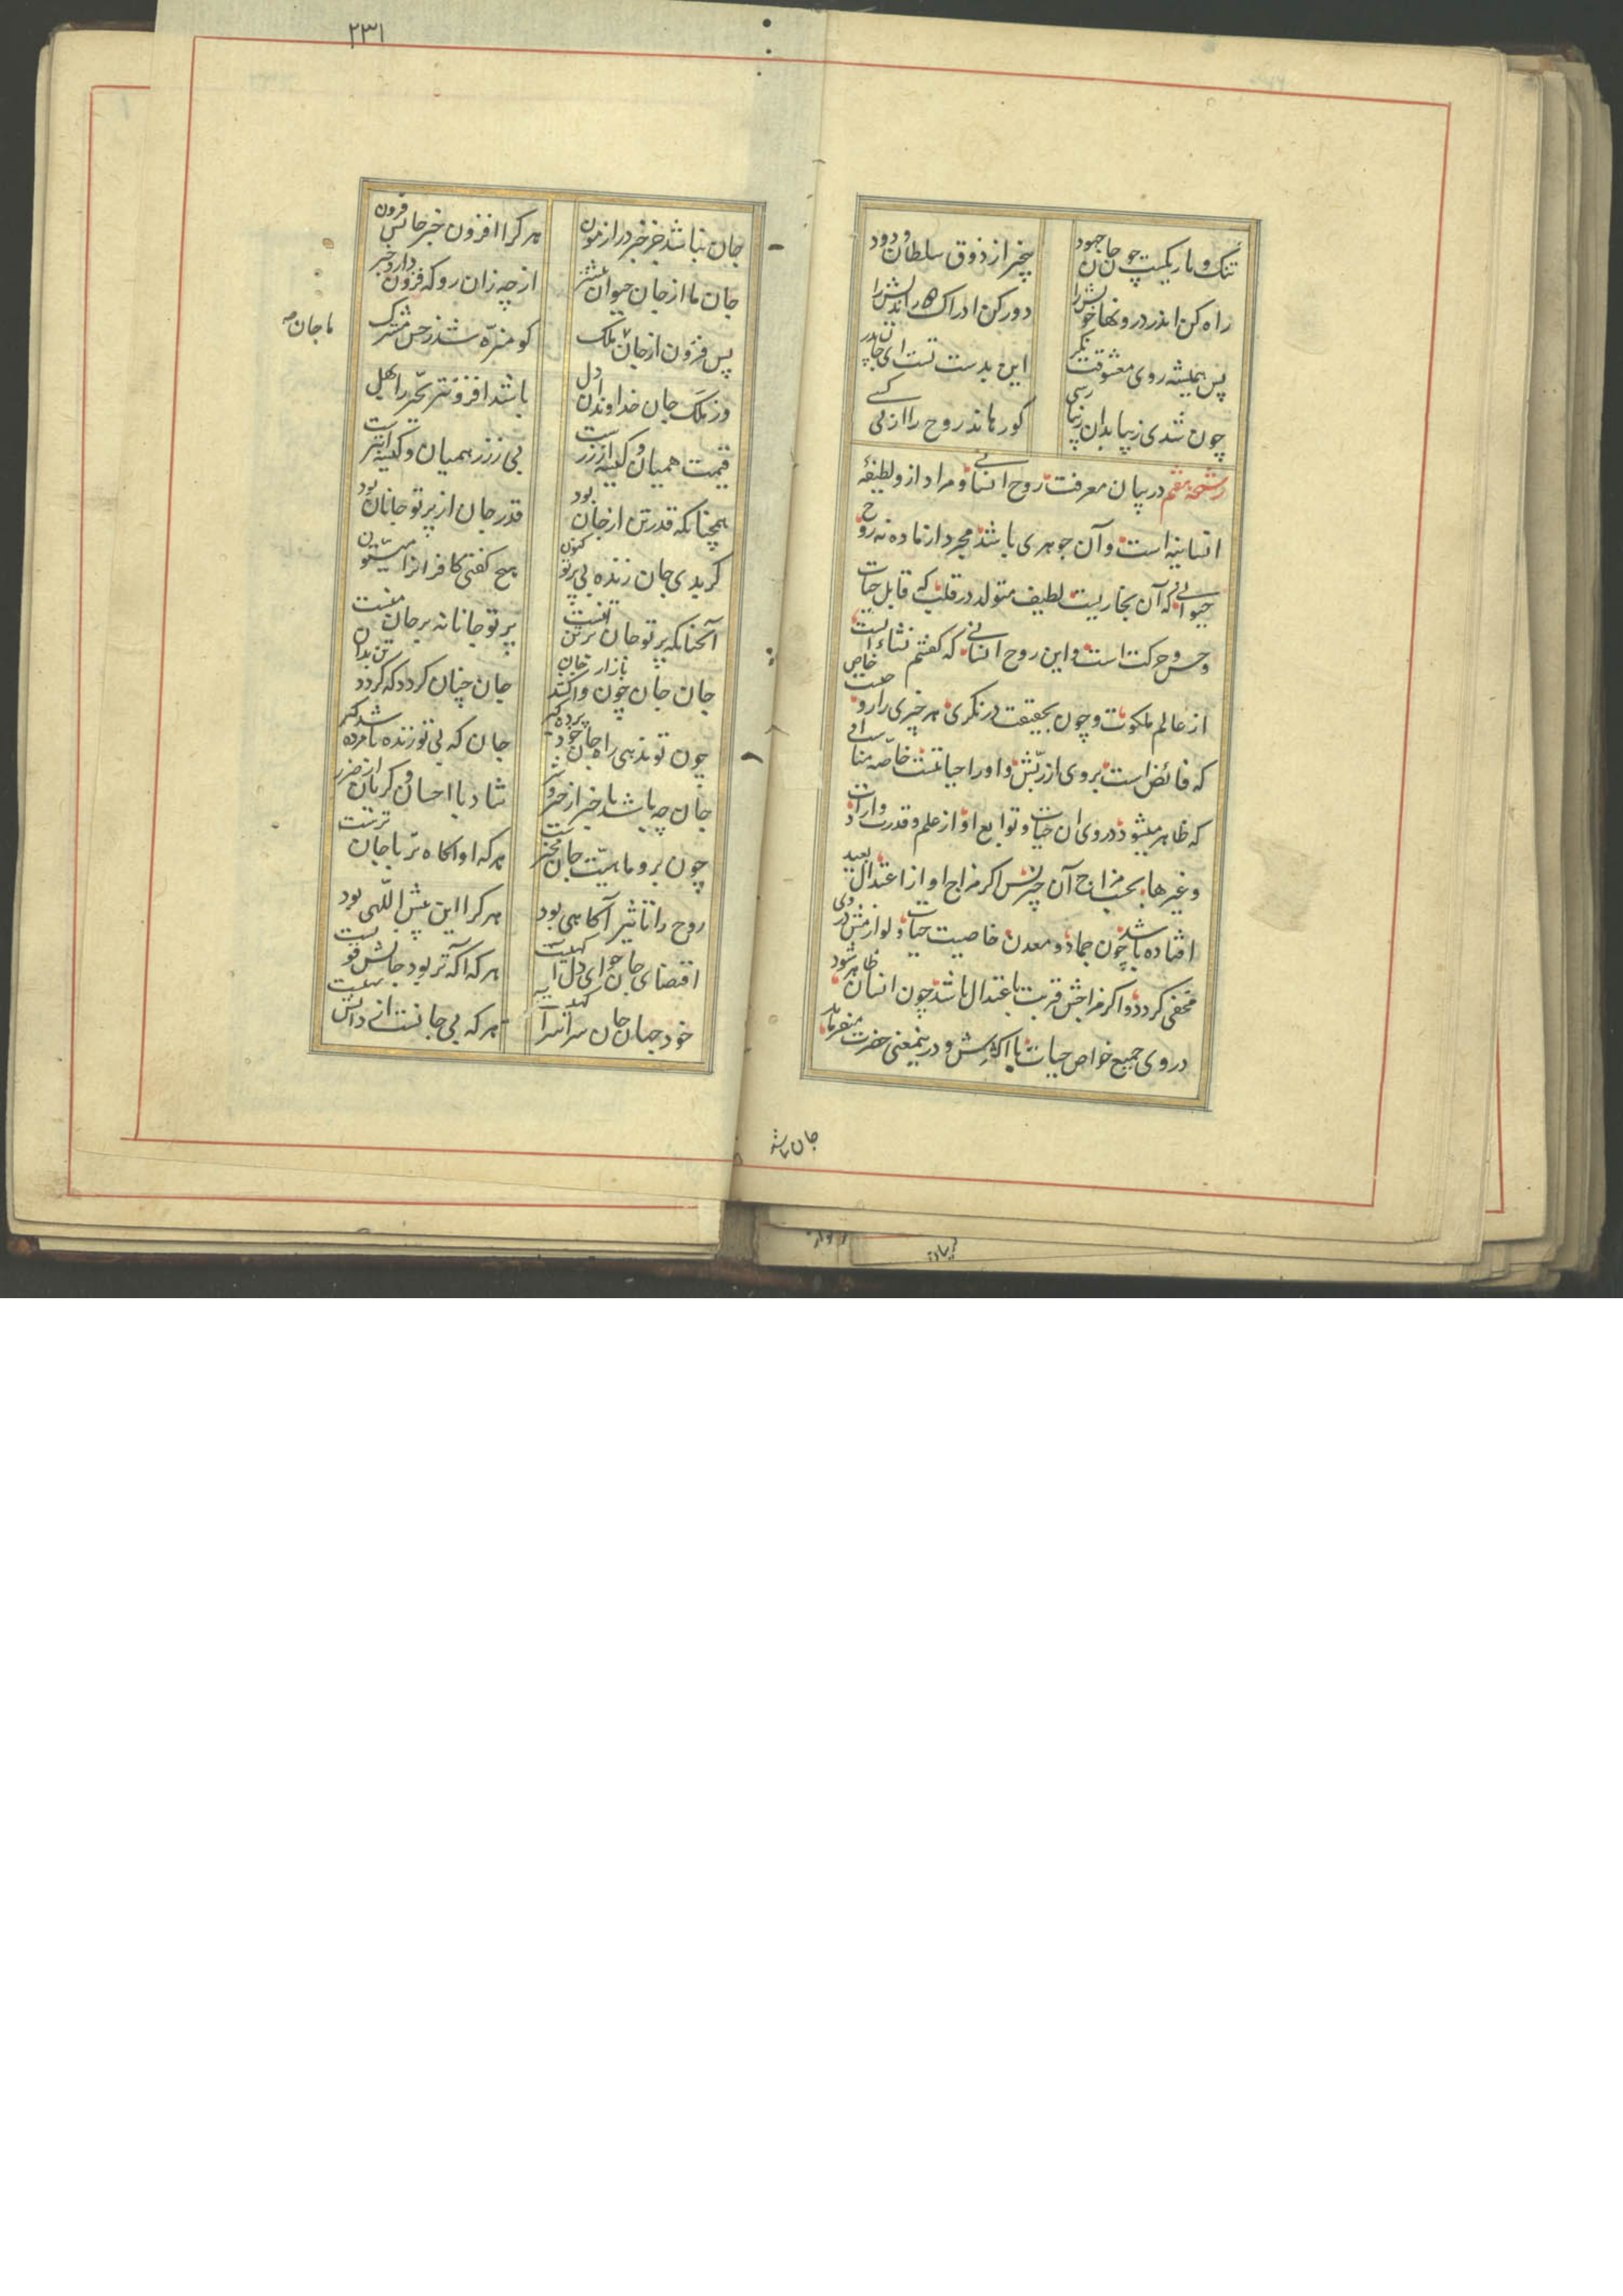 تنک و تاریکیست چون جان جهود	بیخبر از ذوق سلطان ودود
راه کن اندر درونها خویش را	دور کن ادراک
پس همیشه روی معشوقت نکر	این بدست تست ای جان پدر
چون شدی زیبا بدان زیبا رسی	کورهاند روح را از بی کسی
رشحه هفتم در بیان معرفت روح انسانی و مراد از و لطیفهٔ
انسانیه است و آن جوهری باشد مجرد از ماده نه روح
حیوانی که آن بخاریست لطیف متولد در قلب که قابل حیات
و حس و حرکت است و این روح انسانی که کفتم نشاء ایست خاص
از عالم ملکوت و چون بحقیقت درنکری هر چیزی را روحیست
که فائض است بروی از ربّش و او را حیاتیست خاصّه مناسب او
که ظاهر میشود در وی ان حیات و توابع او از علم و قدرت و ارادت
و غیرها بحسب مزاج آن چیز پس اکر مزاج او از اعتدال بعید
افتاده باشد چون جماد و معدن خاصیت حیات و لوازمش در وی
مخفی کردد و اکر مزاجش قریب باعتدال باشد چون انسان ظاهر شود
در وی جمیع خواص حیات یا اکثرش و درینمعنی حضرت میفرماید
جان نباشد
۲۳۱
جان نباشد جز خبر در ازمون	هر کرا افزون خبر جانش فزون
جان ما از جان حیوان بیشتر	از چه زان رو که فزون دارد خبر
پس فزون از جان ما جان ملک	کو منزّه شد ز حس مشترک
ما جان صح
وز ملک جان خداوندان دل	باشد افزونتر تحیّر را بهل
قیمت همیان و کیسه از زرست	بی ززر همیان و کیسه ابترست
همچنانکه قدر تن از جان بود	قدر جان از پرتو جانان بود
کر بدی جان زنده بی پرتو کنون	هیچ کفتی کافرانرا میتون
آنچنانکه پرتو جان بر تنست	پرتو جانانه بر جان منست
جان جان چون واکشد پا را ز جان	جان چنان کردد که کردد تن بدان
چون تو ندهی راه جان خود برده کیر	جان که بی تو زنده باشد مرده کیر
جان چه باشد با خبر از خیر و شر	شاد با احسان و کریان از ضرر
چون سر و ماهیّت جان مخبرست	هر که او اکاه تر با جان ترست
روح را تاثیر آکاهی بود	هر کرا این بیش اللّهی بود
اقتضای جان چو ای دل آکهیست	هر که آکه تر بود جانش قویست
خود جهان جان سراسر آکهیست	هر که بی جانست از دانش تهیست